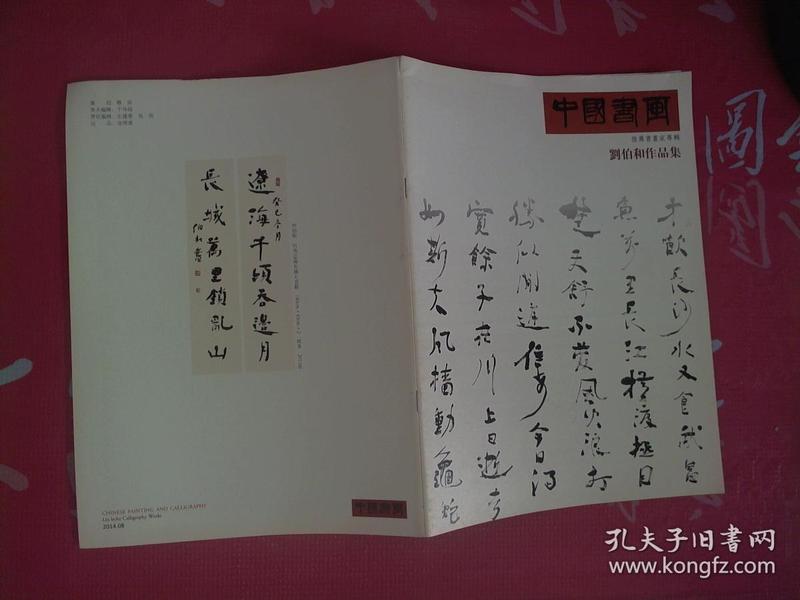 中國書画
劉伯和作品集
才飲長沙水又食武昌
魚萬里長江橫渡極目
楚天舒不管風吹浪打
勝似閒庭信步今日得
寬餘子在川上曰逝者
如斯夫風檣動龜蛇
遼海千頃吞邊月
癸巳冬月
長城萬里鎖亂山
伯和書
CHINESE PAINTING AND CALLIGRAPHY
Liu bohe Calligraphy Works
2014.08
中國書画
圖
孔夫子旧书网
www.kongfz.com